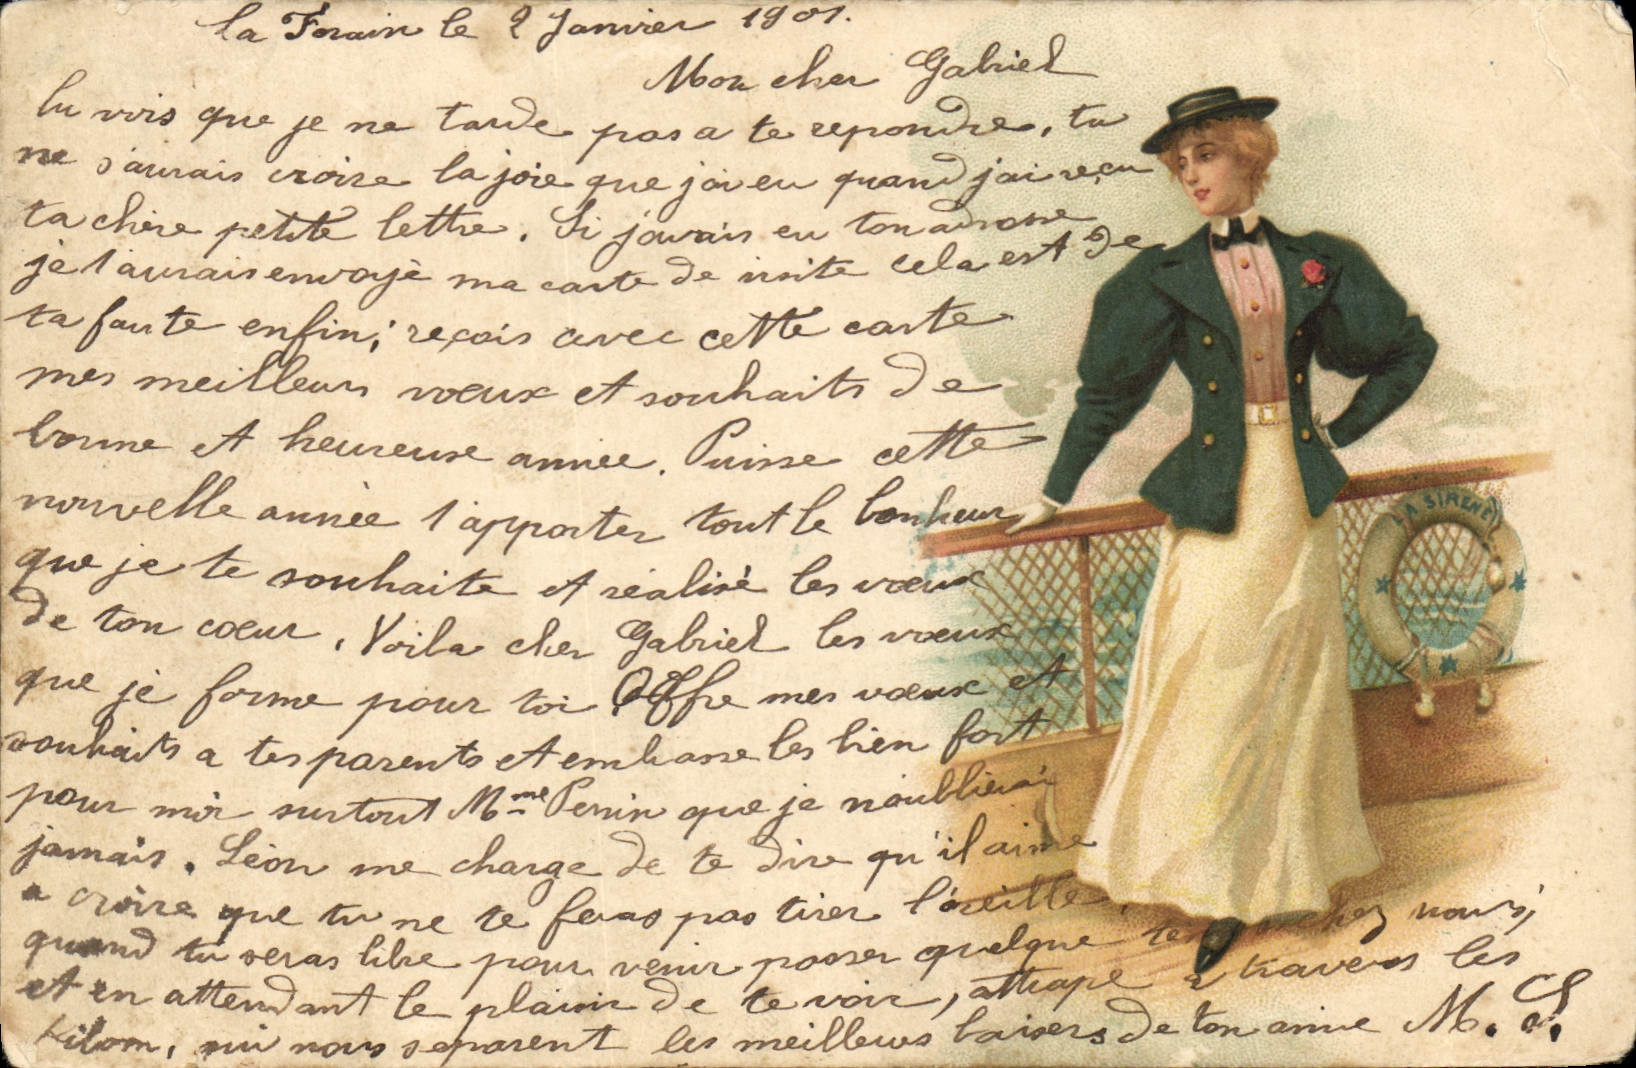 la Forain le 2 Janvier 1901.
Mon cher Gabriel
tu vois que je ne tarde pas a te repondre, tu
ne s'aurais croire la joie que j'ai eu quand j'ai reçu
ta chère petite lettre. Si j'avais eu ton adresse
je t'aurais envoyé ma carte de visite cela est de
ta faute enfin; reçois avec cette carte
mes meilleurs vœux et souhaits de
bonne et heureuse année. Puisse cette
nouvelle année t'apporter tout le bonheur
que je te souhaite et réalisé les vœux
de ton cœur. Voila cher Gabriel les vœux
que je forme pour toi. Offre mes vœux et
souhaits a tes parents et embrasse les bien fort
pour moi surtout Mme Perrin que je n'oublierai
jamais. Léon me charge de te dire qu'il aime
a croire que tu ne te feras pas tirer l'oreille,
quand tu seras libre pour venir passer quelque chez nous,
et en attendant le plaisir de te voir, attrape a travers les
kilom, qui nous separent les meilleurs baisers de ton amie M.
LA SIRENE